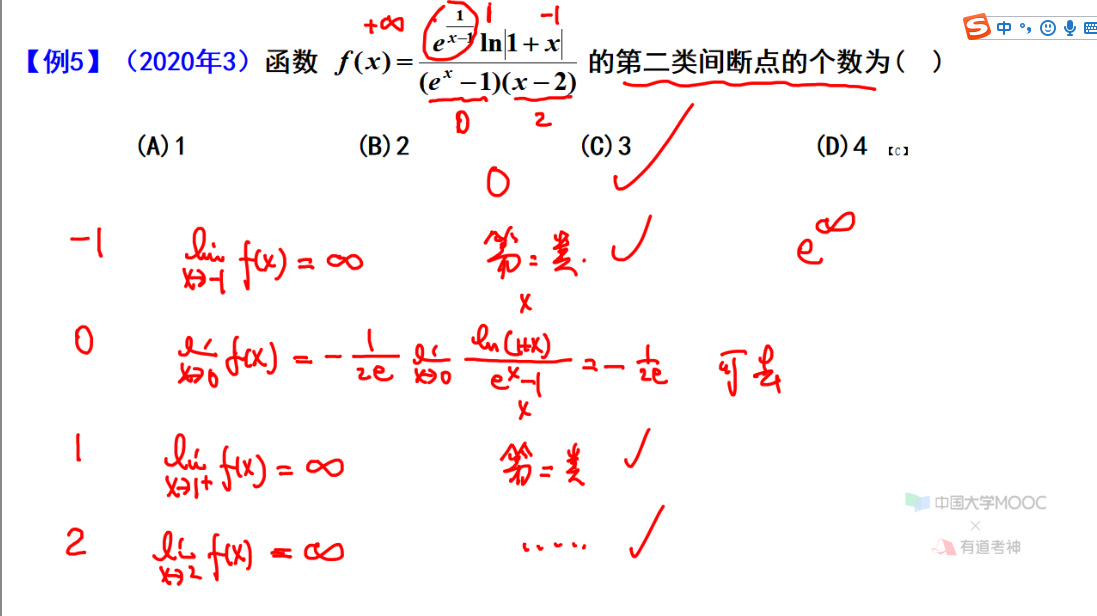 +∞ 1 -1
【例5】（2020年3）函数 f(x)= \frac{e^{\frac{1}{x-1}} ln|1+x|}{(e^x-1)(x-2)} 的第二类间断点的个数为( )
0 2
(A)1 (B)2 (C)3 (D)4 【C】
0
-1 lim_{x→-1} f(x) = ∞ 第二类. e^∞
x
0 lim_{x→0} f(x) = -\frac{1}{2e} lim_{x→0} \frac{ln(1+x)}{e^x-1} = -\frac{1}{2e} 可去
x
1 lim_{x→1+} f(x) = ∞ 第二类
2 lim_{x→2} f(x) = ∞ ·····
中国大学MOOC
×
有道考神
S中